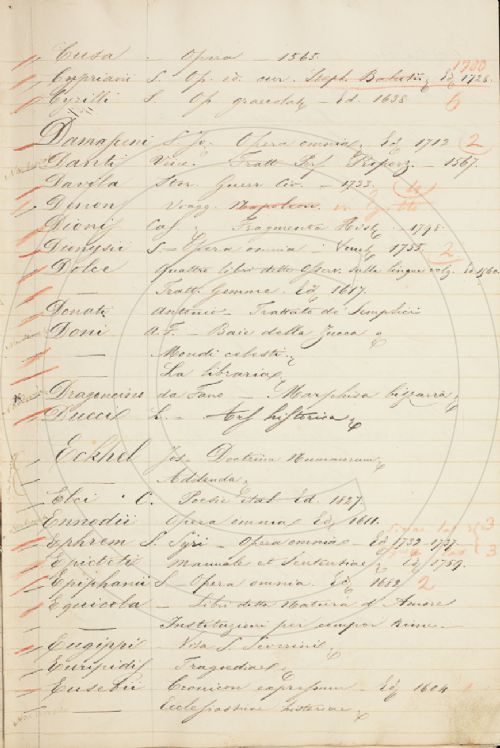 Cusa - Opera - 1565.
1700
Cypriani S. Op. ed. cur. Steph. Ed 1728.
Cyrilli S. Op. - Ed. 1638 6
Damasceni S. Jo. Opera omnia. Ed 1712 2
Danti Vinc. Tratt. Perf. Proporz. - 1567.
Davila Stor. Guerr. Civ. - 1733.
Denon Viagg. Napoleon. in
Dionis Cas. Fragmenta
Dionysii S. - Opera omnia. 1755. 2
Dolce quattro libri delle Osserv. sulla lingua volg. Ed 1560.
— Tratt. Gemme. Ed 1617.
Donati Antonio - Trattato de Semplici
Doni A. F. - Baie della Zucca
— Mondi celesti
— La libraria
Dragoncino da Fano - Marphisa bizzarra
Duccii L. - Ars historica
Eckhel Jos. Doctrina Nummorum
— Addenda.
Elci C. Poesie Ital. Ed. 1827.
Ennodii Opera omnia Ed 1611.
3
Ephrem S. Syri - Opera omnia - Ed 1732-1747.
3
Epicteti Manuale et Sententiae Ed
Epiphanii S. - Opera omnia. Ed 1682 2
Equicola - Libri della Natura d'Amore
— Instituzioni per compor Rime.
Eugippi - Vita S. Severini
Euripidis Tragoediae
Eusebii Cronicon Ed 1604
— Ecclesiastica historia